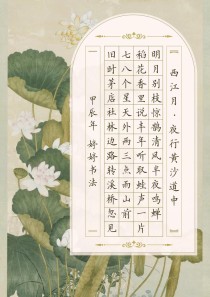 西江月·夜行黄沙道中
明月别枝惊鹊清风半夜鸣蝉
稻花香里说丰年听取蛙声一片
七八个星天外两三点雨山前
旧时茅店社林边路转溪桥忽见
甲辰年 婷婷书法